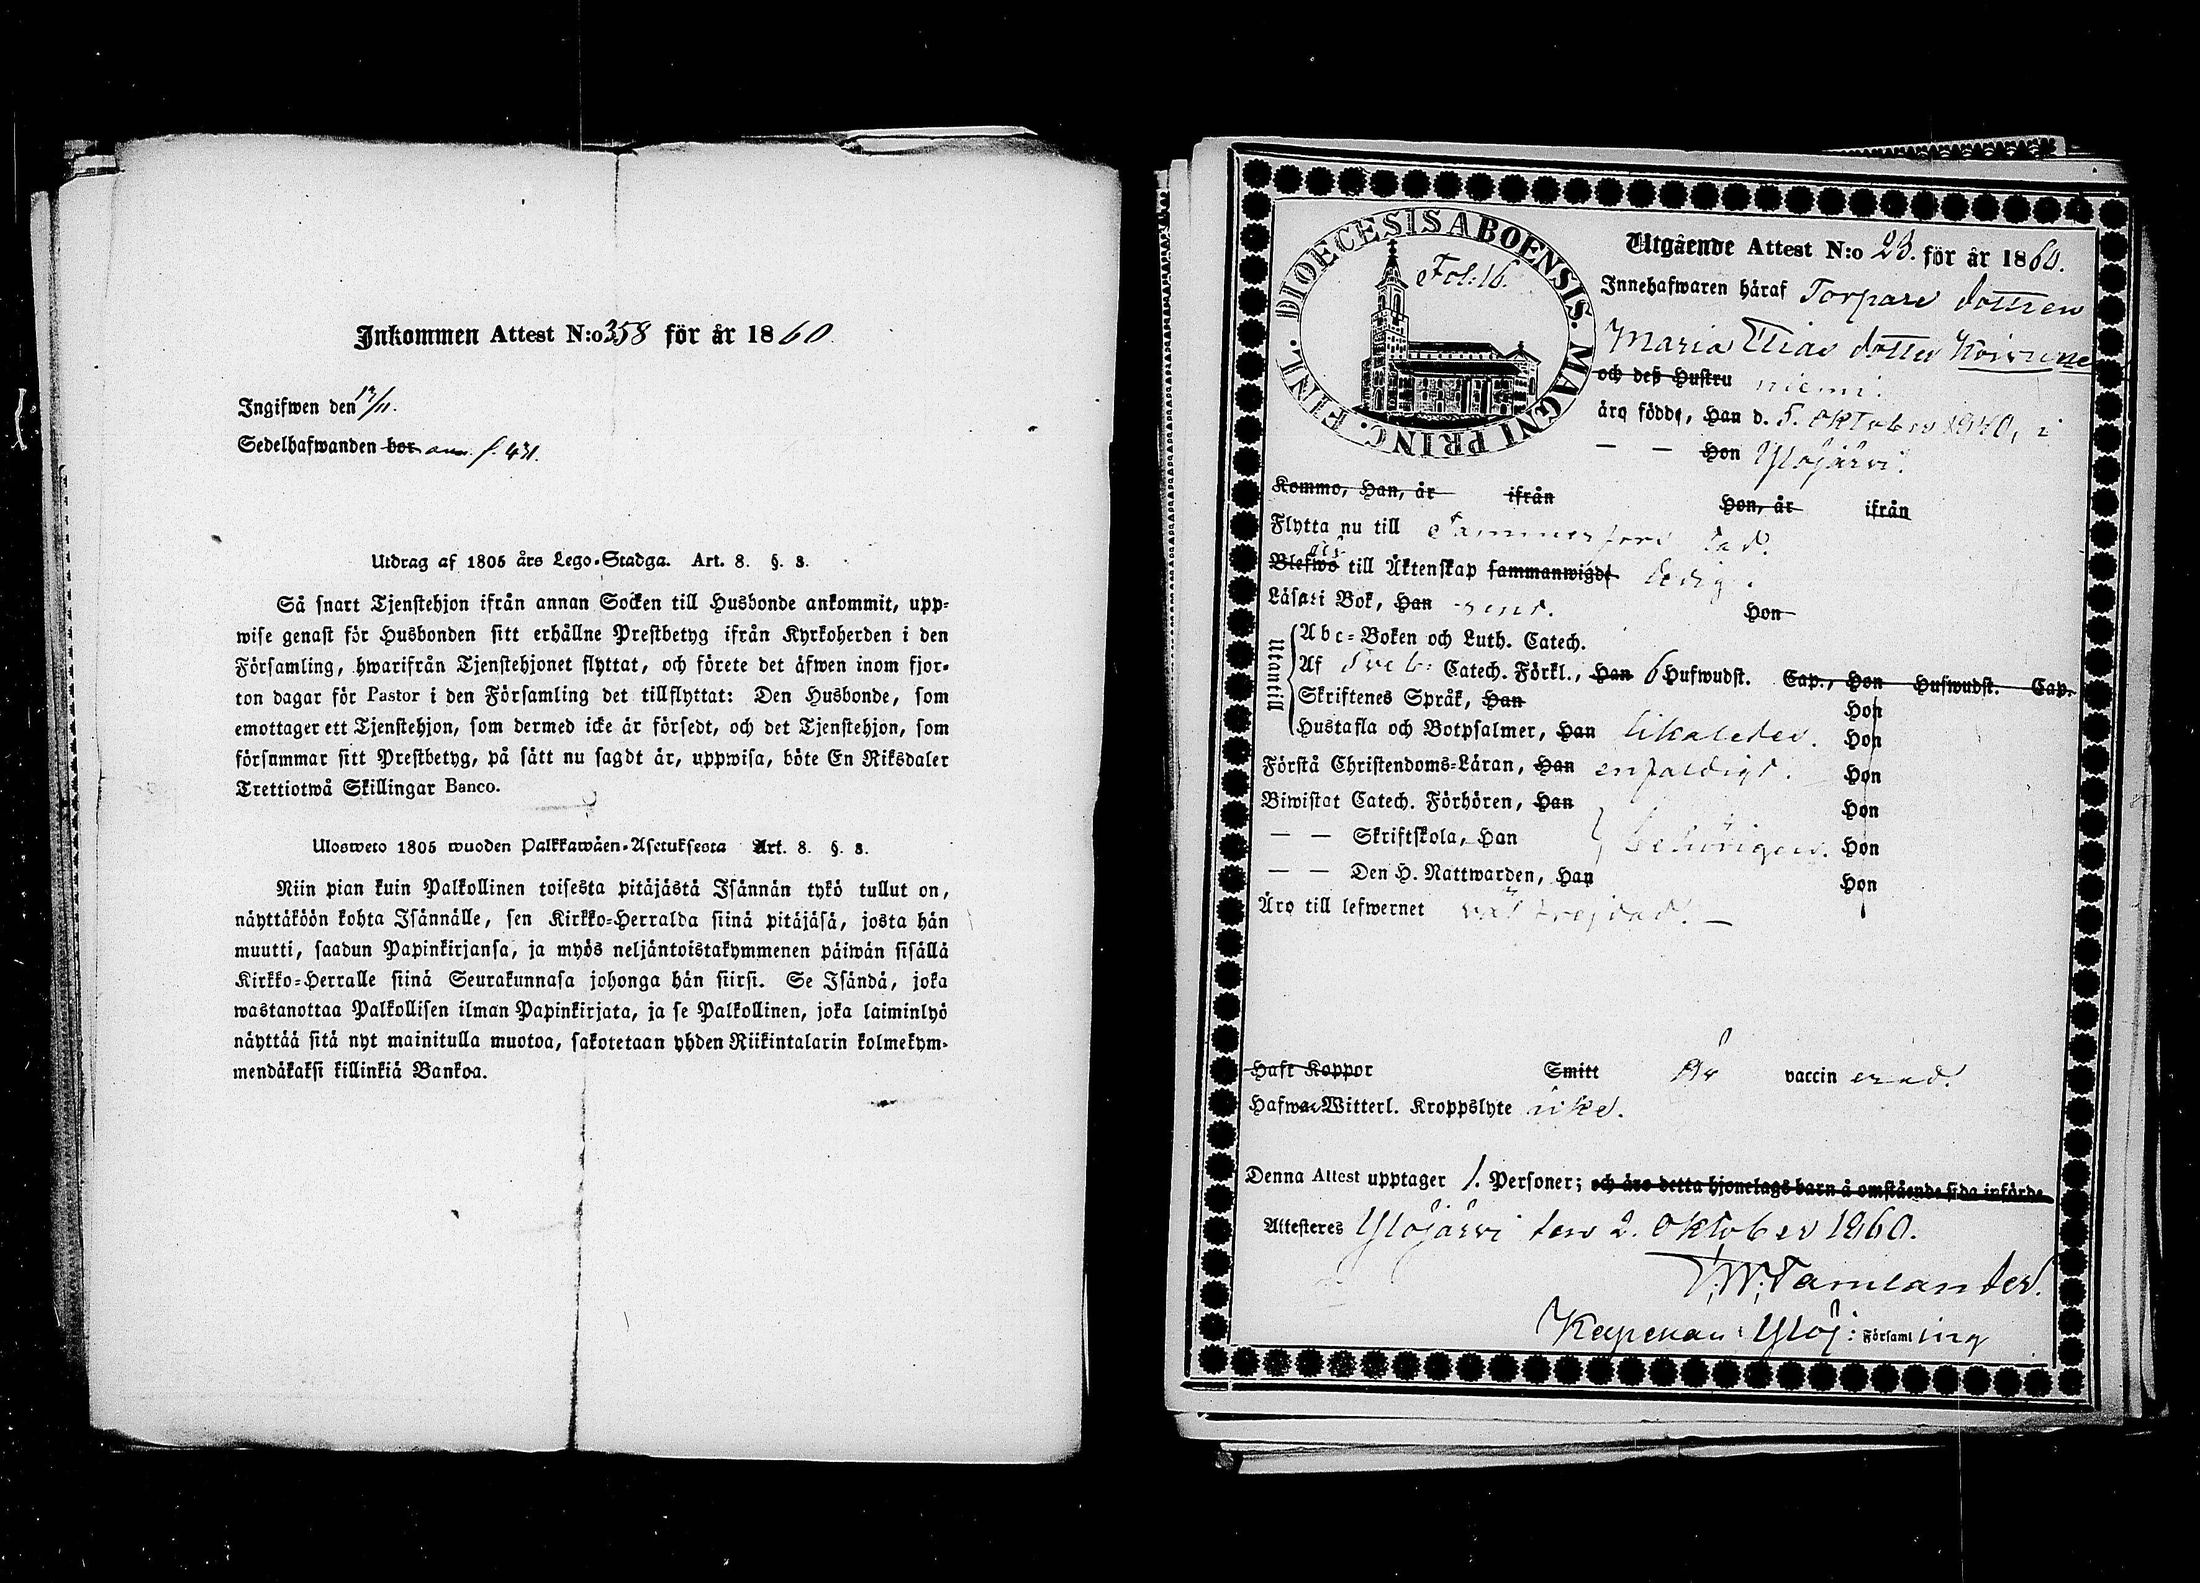 Inkommen Attest N:o 358 för år 1860.
Ingifwen den 13/11.
Sedelhafwanden bor ann. f. 431.
Utdrag af 1805 års Lego-Stadga. Art. 8. §. 8.
Så snart Tjenstehjon ifrån annan Socken till Husbonde ankommit, upp-
wise genast för Husbonden sitt erhållne Prestbetyg ifrån Kyrkoherden i den
Församling, hwarifrån Tjenstehjonet flyttat, och förete det äfwen inom fjor-
ton dagar för Pastor i den Församling det tillflyttat: Den Husbonde, som
emottager ett Tjenstehjon, som dermed icke är försedt, och det Tjenstehjon, som
försummar sitt Prestbetyg, på sätt nu sagdt är, uppwisa, böte En Riksdaler
Trettiotwå Skillingar Banco.
Ulosweto 1805 wuoden Palkkawäen-Asetuksesta Art. 8. §. 8.
Niin pian kuin Palkollinen toisesta pitäjästä Isännän tykö tullut on,
näyttäköön kohta Isännälle, sen Kirkko-Herralda siinä pitäjäsä, josta hän
muutti, saadun Papinkirjansa, ja myös neljäntoistakymmenen päiwän sisällä
Kirkko-Herralle siinä Seurakunnasa johonga hän siirsi. Se Isändä, joka
wastanottaa Palkollisen ilman Papinkirjata, ja se Palkollinen, joka laiminlyö
näyttää sitä nyt mainitulla muotoa, sakotetaan yhden Riikintalarin kolmekym-
mendäkaksi killinkiä Bankoa.
DIOECESIS ABOENSIS. MAGNI PRINC. FINL.
Fol: 16.
Utgående Attest N:o 23. för år 1860.
Innehafwaren häraf Torpare dottren
Maria Elias dotter Koivune
och deß Hustru niemi.
äro födde, Han d. 5. oktober 1840, i
— — Hon Ylöjärvi.
Kommo, Han, år ifrån Hon, år ifrån
Flytta nu till Tammerfors stad.
Blefwo till Äktenskap sammanwigde ledig.
Läsa i Bok, Han Hon
Utantill
Abc-Boken och Luth. Catech.
Af Sveb: Catech. Förkl., Han 6 Hufwudst. Cap., Hon Hufwudst. Cap.
Skriftenes Språk, Han Hon
Hustafla och Botpsalmer, Han likaledes. Hon
Förstå Christendoms-Läran, Han enfaldigt. Hon
Biwistat Catech. Förhören, Han Hon
— — Skriftskola, Han behörigen. Hon
— — Den H. Nattwarden, Han Hon
Äro till lefwernet väl frejdad. —
Haft Koppor Smitt är vaccin erad.
Hafwa Witterl. Kroppslyte icke.
Denna Attest upptager 1. Personer; och äro detta hjonelags barn å omstående sida införde
Attesteres Ylöjärvi den 2. oktober 1860.
T. W. Tamlander.
Kapellan i Ylöj: Församl ing